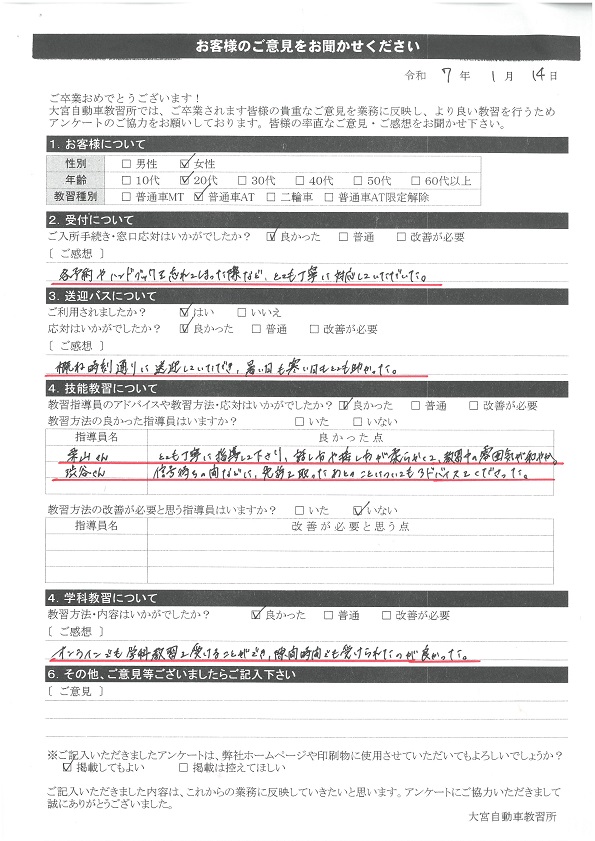 お客様のご意見をお聞かせください
令和 7 年 1 月 14 日
ご卒業おめでとうございます！
大宮自動車教習所では、ご卒業されます皆様の貴重なご意見を業務に反映し、より良い教習を行うため
アンケートのご協力をお願いしております。皆様の率直なご意見・ご感想をお聞かせ下さい。
1. お客様について
性別 □ 男性 ☑ 女性
年齢 □ 10代 ☑ 20代 □ 30代 □ 40代 □ 50代 □ 60代以上
教習種別 □ 普通車MT ☑ 普通車AT □ 二輪車 □ 普通車AT限定解除
2. 受付について
ご入所手続き・窓口応対はいかがでしたか？ ☑ 良かった □ 普通 □ 改善が必要
〔 ご感想 〕
各予約やハンドブックを忘れてしまった際など、とても丁寧に対応していただいた。
3. 送迎バスについて
ご利用されましたか？ ☑ はい □ いいえ
応対はいかがでしたか？ ☑ 良かった □ 普通 □ 改善が必要
〔 ご感想 〕
概ね時刻通りに送迎していただき、暑い日も寒い日もとても助かった。
4. 技能教習について
教習指導員のアドバイスや教習方法・応対はいかがでしたか？ ☑ 良かった □ 普通 □ 改善が必要
教習方法の良かった指導員はいますか？ □ いた □ いない
指導員名 良かった点
栗山さん とても丁寧に指導して下さり、話し方や接し方が柔らかくて、教習中の雰囲気が和やか。
渋谷さん 信号待ちの間などに、免許を取ったあとのことについてもアドバイスをくださった。
教習方法の改善が必要と思う指導員はいますか？ □ いた ☑ いない
指導員名 改善が必要と思う点
4. 学科教習について
教習方法・内容はいかがでしたか？ ☑ 良かった □ 普通 □ 改善が必要
〔 ご感想 〕
オンラインでも学科教習を受けることができ、隙間時間でも受けられたのが良かった。
6. その他、ご意見等ございましたらご記入下さい
〔 ご意見 〕
※ご記入いただきましたアンケートは、弊社ホームページや印刷物に使用させていただいてもよろしいでしょうか？
☑ 掲載してもよい □ 掲載は控えてほしい
ご記入いただきました内容は、これからの業務に反映していきたいと思います。アンケートにご協力いただきまして
誠にありがとうございました。
大宮自動車教習所